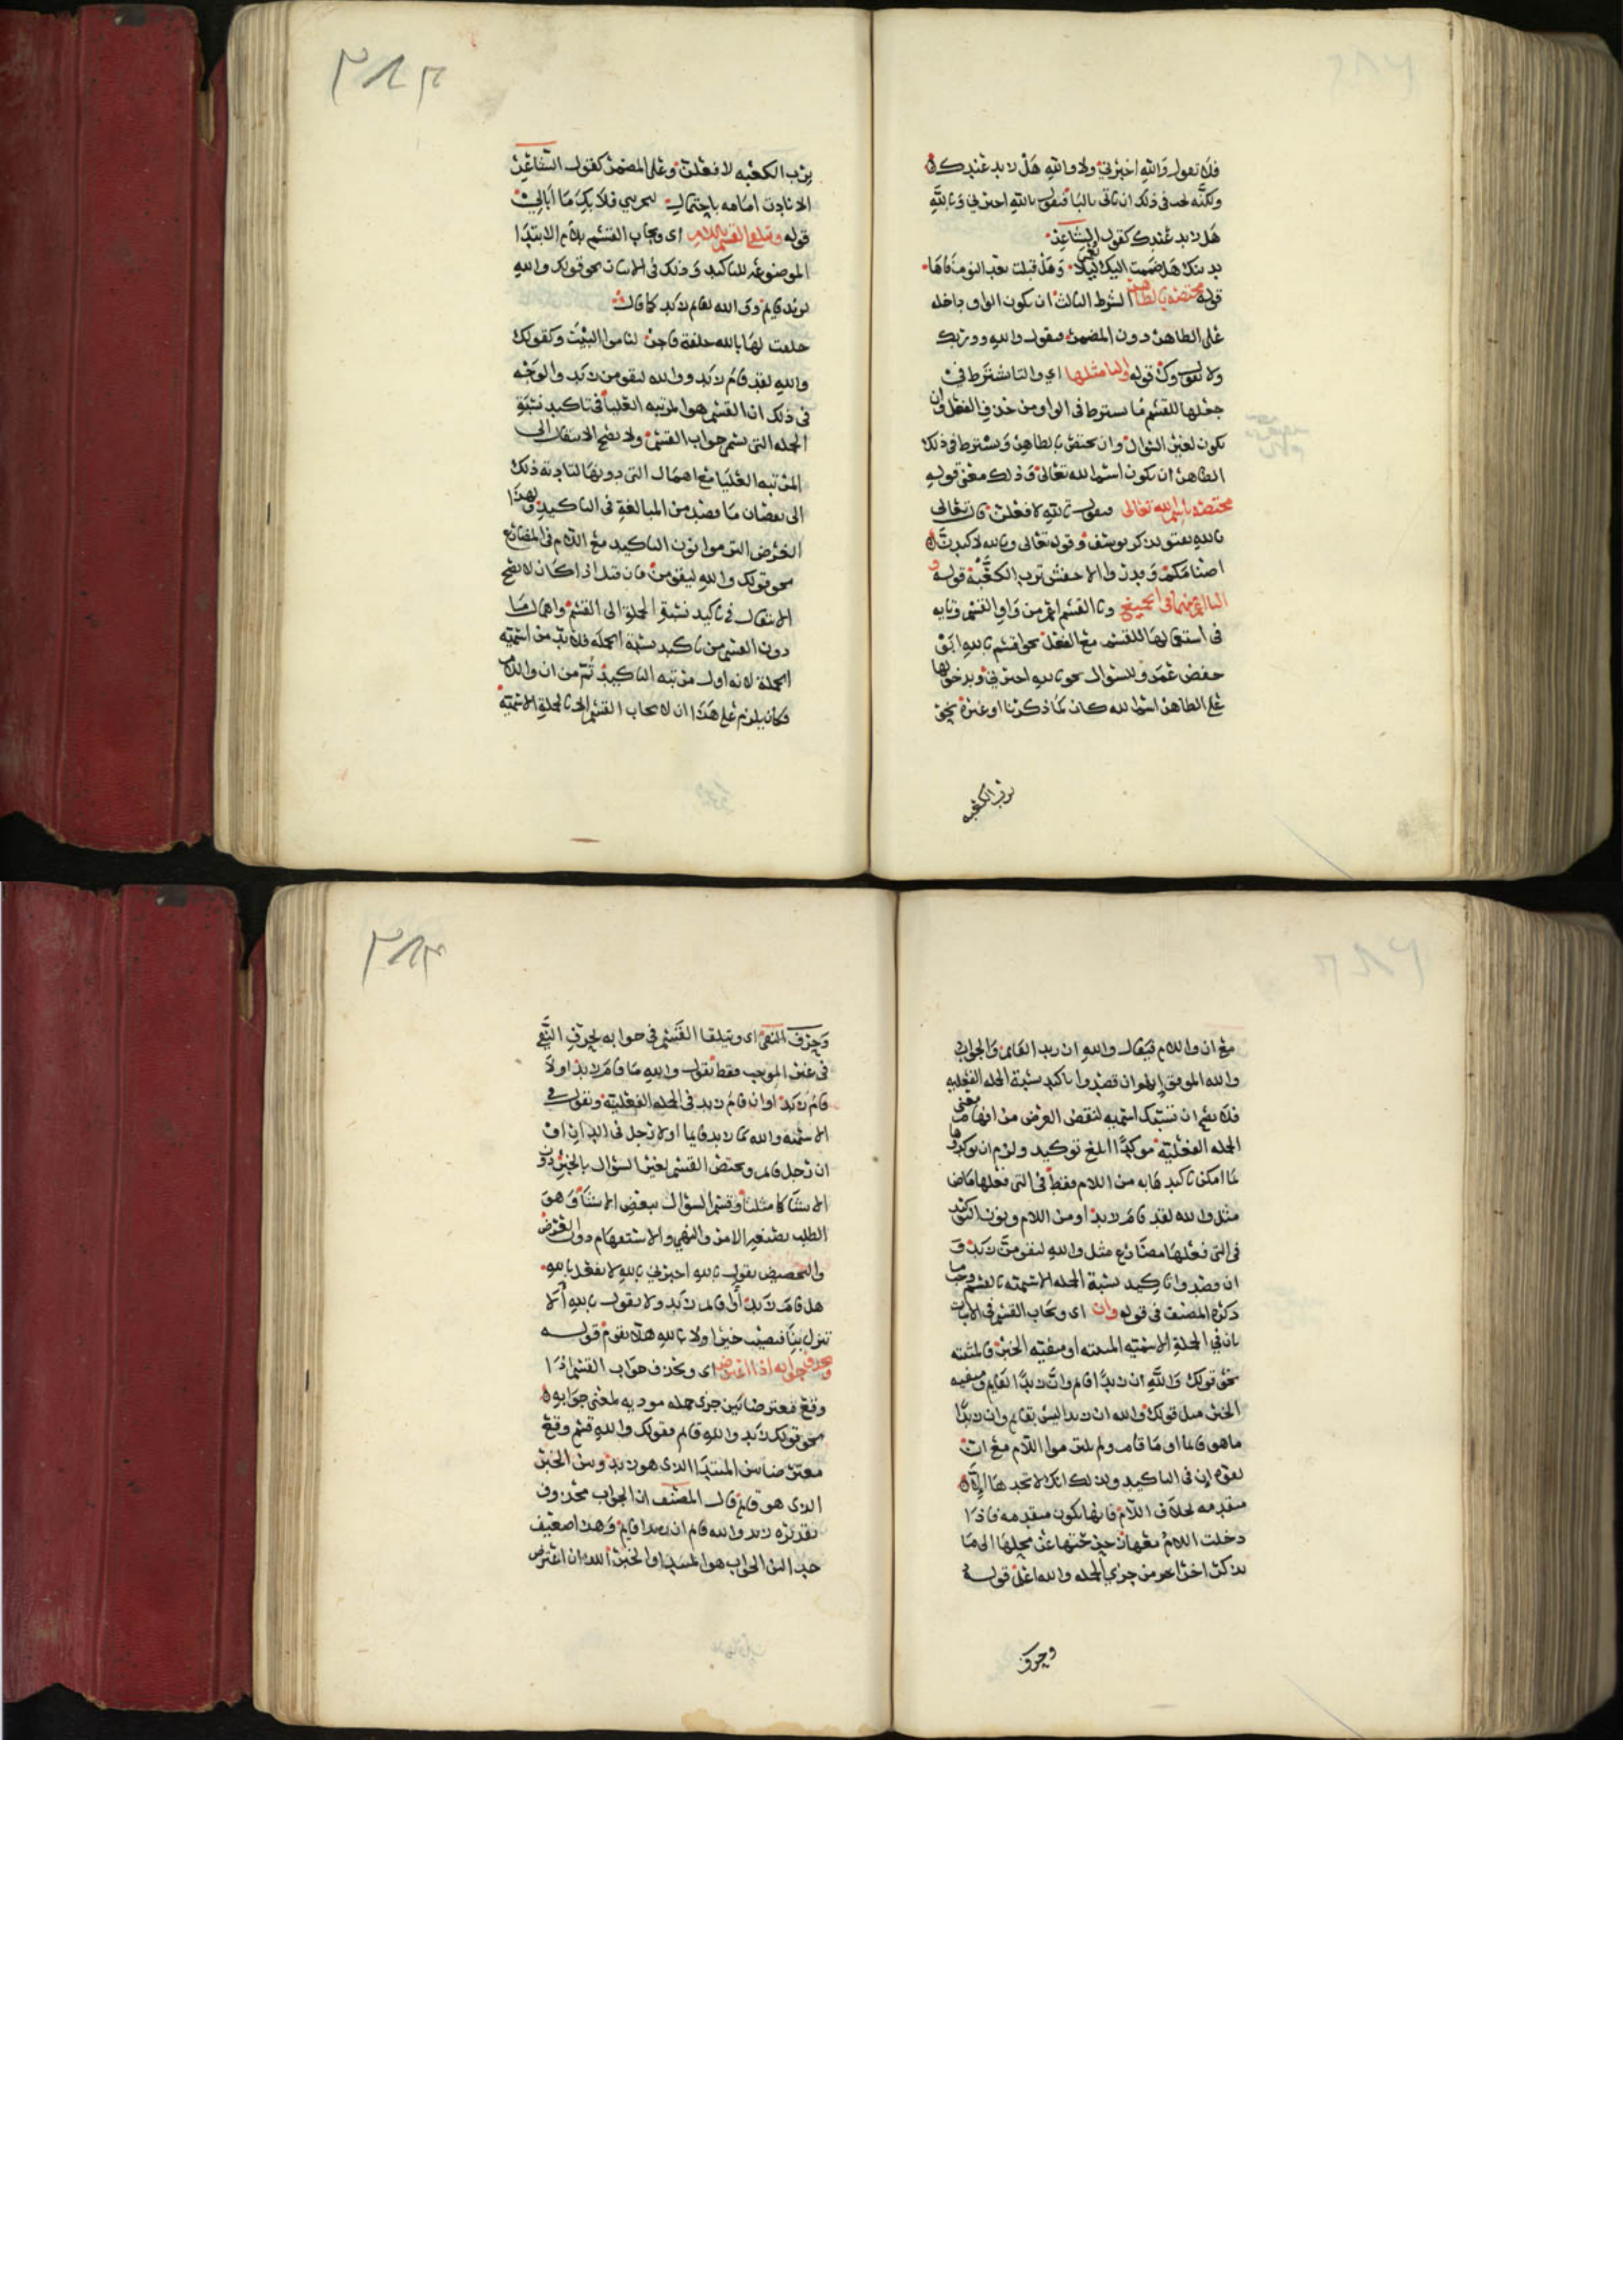 فلا تقول والله اخبرني ولا والله هل زيد عندك
ولكنه لحد في ذلك ان تاتي بالبا فتقول بالله اخبرني وبالله
هل زيد عندك كقول الشاعر
بدينك هل ضممت اليك ليلا وهل قبلت بعد النوم فاها
قوله مختصه بالظاهر الشرط الثالث ان يكون الواو داخله
على الظاهر دون المضمر فيقول والله وربك
ولا تقول وك قوله والتا مثلها اي والتا شترط في
جعلها للقسم ما يشترط في الواو من حذف الفعل وان
يكون لغير السوال وان يختص بالظاهر ويشترط في ذلك
الظاهر ان يكون اسم الله تعالى وذلك معنى قوله
مختصه باسم الله تعالى فيقول تالله لافعلن قال تعالى
تالله تفتو تذكر يوسف وقوله تعالى وتالله لاكيدن
اصنامكم وقد روا الاخفش ترب الكعبة قوله و
البا اعم منهما في الجميع وبا القسم اعم من واو القسم وتايه
في استعمالها للقسم مع الفعل نحو اقسم بالله ابو
حفص عمر وللسؤال نحو بالله اخبرني وبدخولها
على الظاهر اسم الله كان كما ذكرنا او غيره نحو
برب الكعبه
برب الكعبه لافعلن وعلى المضمر كقول الشاعر
الا نادت امامه باحتمال لتحزنني فلا بك ما ابالي
قوله وتلقى القسم باللام اي ويجاب القسم بلام الابتدا
الموضوعه للتاكيد وذلك في الاثبات نحو قولك والله
لزيد قايم وفي الله لقام زيد كما قال
حلفت لها بالله حلفة فاجر لناموا البيت وكقولك
والله لقد قام زيد ووالله ليقومن زيد والوجه
في ذلك ان القسم هو المرتبه العليا في تاكيد نسبة
الجمله التي يسمى جواب القسم ولا يصح الانتقال الى
المرتبه العليا مع اهمال التي دونها لتاديه ذلك
الى نقصان ما قصد من المبالغة في التاكيد ولهذا
الغرض التزموا نون التاكيد مع اللام في المضارع
نحو قولك والله ليقومن فان قيل اذا كان لا يصح
الانتقال في تاكيد نسبة الجملة الى القسم واهمال ما
دون القسم من تاكيد نسبة الجمله فلا بد من اسميه
الجملة لانه اول مرتبه التاكيد ثم من ان واللام
فكان يلزم على هذا ان لا يجاب القسم الا بالجملة الاسميه
مع ان واللام فيقال والله ان زيد القايم والجواب
والله الموفق انهم ان قصدوا تاكيد نسبة الجمله الفعليه
فلا يصح ان تنسبك اسميه لنقض الغرض من افهام معنى
الجمله الفعلية موكدا ابلغ توكيد ولزم ان يوكدوها
بما امكن تاكيدها به من اللام فقط في التي فعلها ماض
مثل والله لقد قام زيد او من اللام ونون التوكيد
في التي فعلها مضارع مثل والله ليقومن زيد و
ان قصدوا تاكيد نسبة الجمله الاسميه بالقسم وجب ما
ذكره المصنف في قوله وان اي ويجاب القسم في الاثبات
بان في الجملة الاسميه المثبته او منفية الخبر فالمثبته
نحو قولك والله ان زيدا قام وان زيدا القايم ومنفيه
الخبر مثل قولك والله ان زيدا ليس بقايم وان زيدا
ماهو قايما او ما قام ولم يلتزموا اللام مع ان
لقوة ان في التاكيد ولذلك انك لا تجدها الا
متقدمه بخلاف اللام فانها تكون متقدمه فاذا
دخلت اللام معها زحزحتها عن محلها الى ما
يذكر اخرا من جزي الجمله والله اعلم قوله
وحرف
وحرف النفي اي ويتلقا القسم في جوابه بحرف النفي
في غير الموجب فقط تقول والله ما قام زيد او لا
قام زيد او ان قام زيد في الجمله الفعلية وتقول في
الاسميه والله ما زيد قايما او لا رجل في الدار او
ان رجل قايم ويختص القسم لغير السؤال بالخبر دون
الانشا كما مثلنا وقسم السؤال ببعض الانشا وهو
الطلب بصيغه الامر والنهي والاستفهام دون العرض
والتحضيض تقول بالله اخبرني بالله لا تفعل بالله
هل قام زيد او قايم زيد ولا يقول بالله الا
تنزل بنا فتصيب خيرا ولا بالله هلا تقوم قوله
وحذف جوابه اذا اعترض اي ويحذف جواب القسم اذا
وقع معترضا بين جزي جمله موديه لمعنى جوابه
نحو قولك زيد والله قايم فقولك والله قسم وقع
معترضا بين المبتدا الذي هو زيد وبين الخبر
الذي هو قايم قال المصنف ان الجواب محذوف
تقديره زيد والله قام ان زيدا قايم وهذا ضعيف